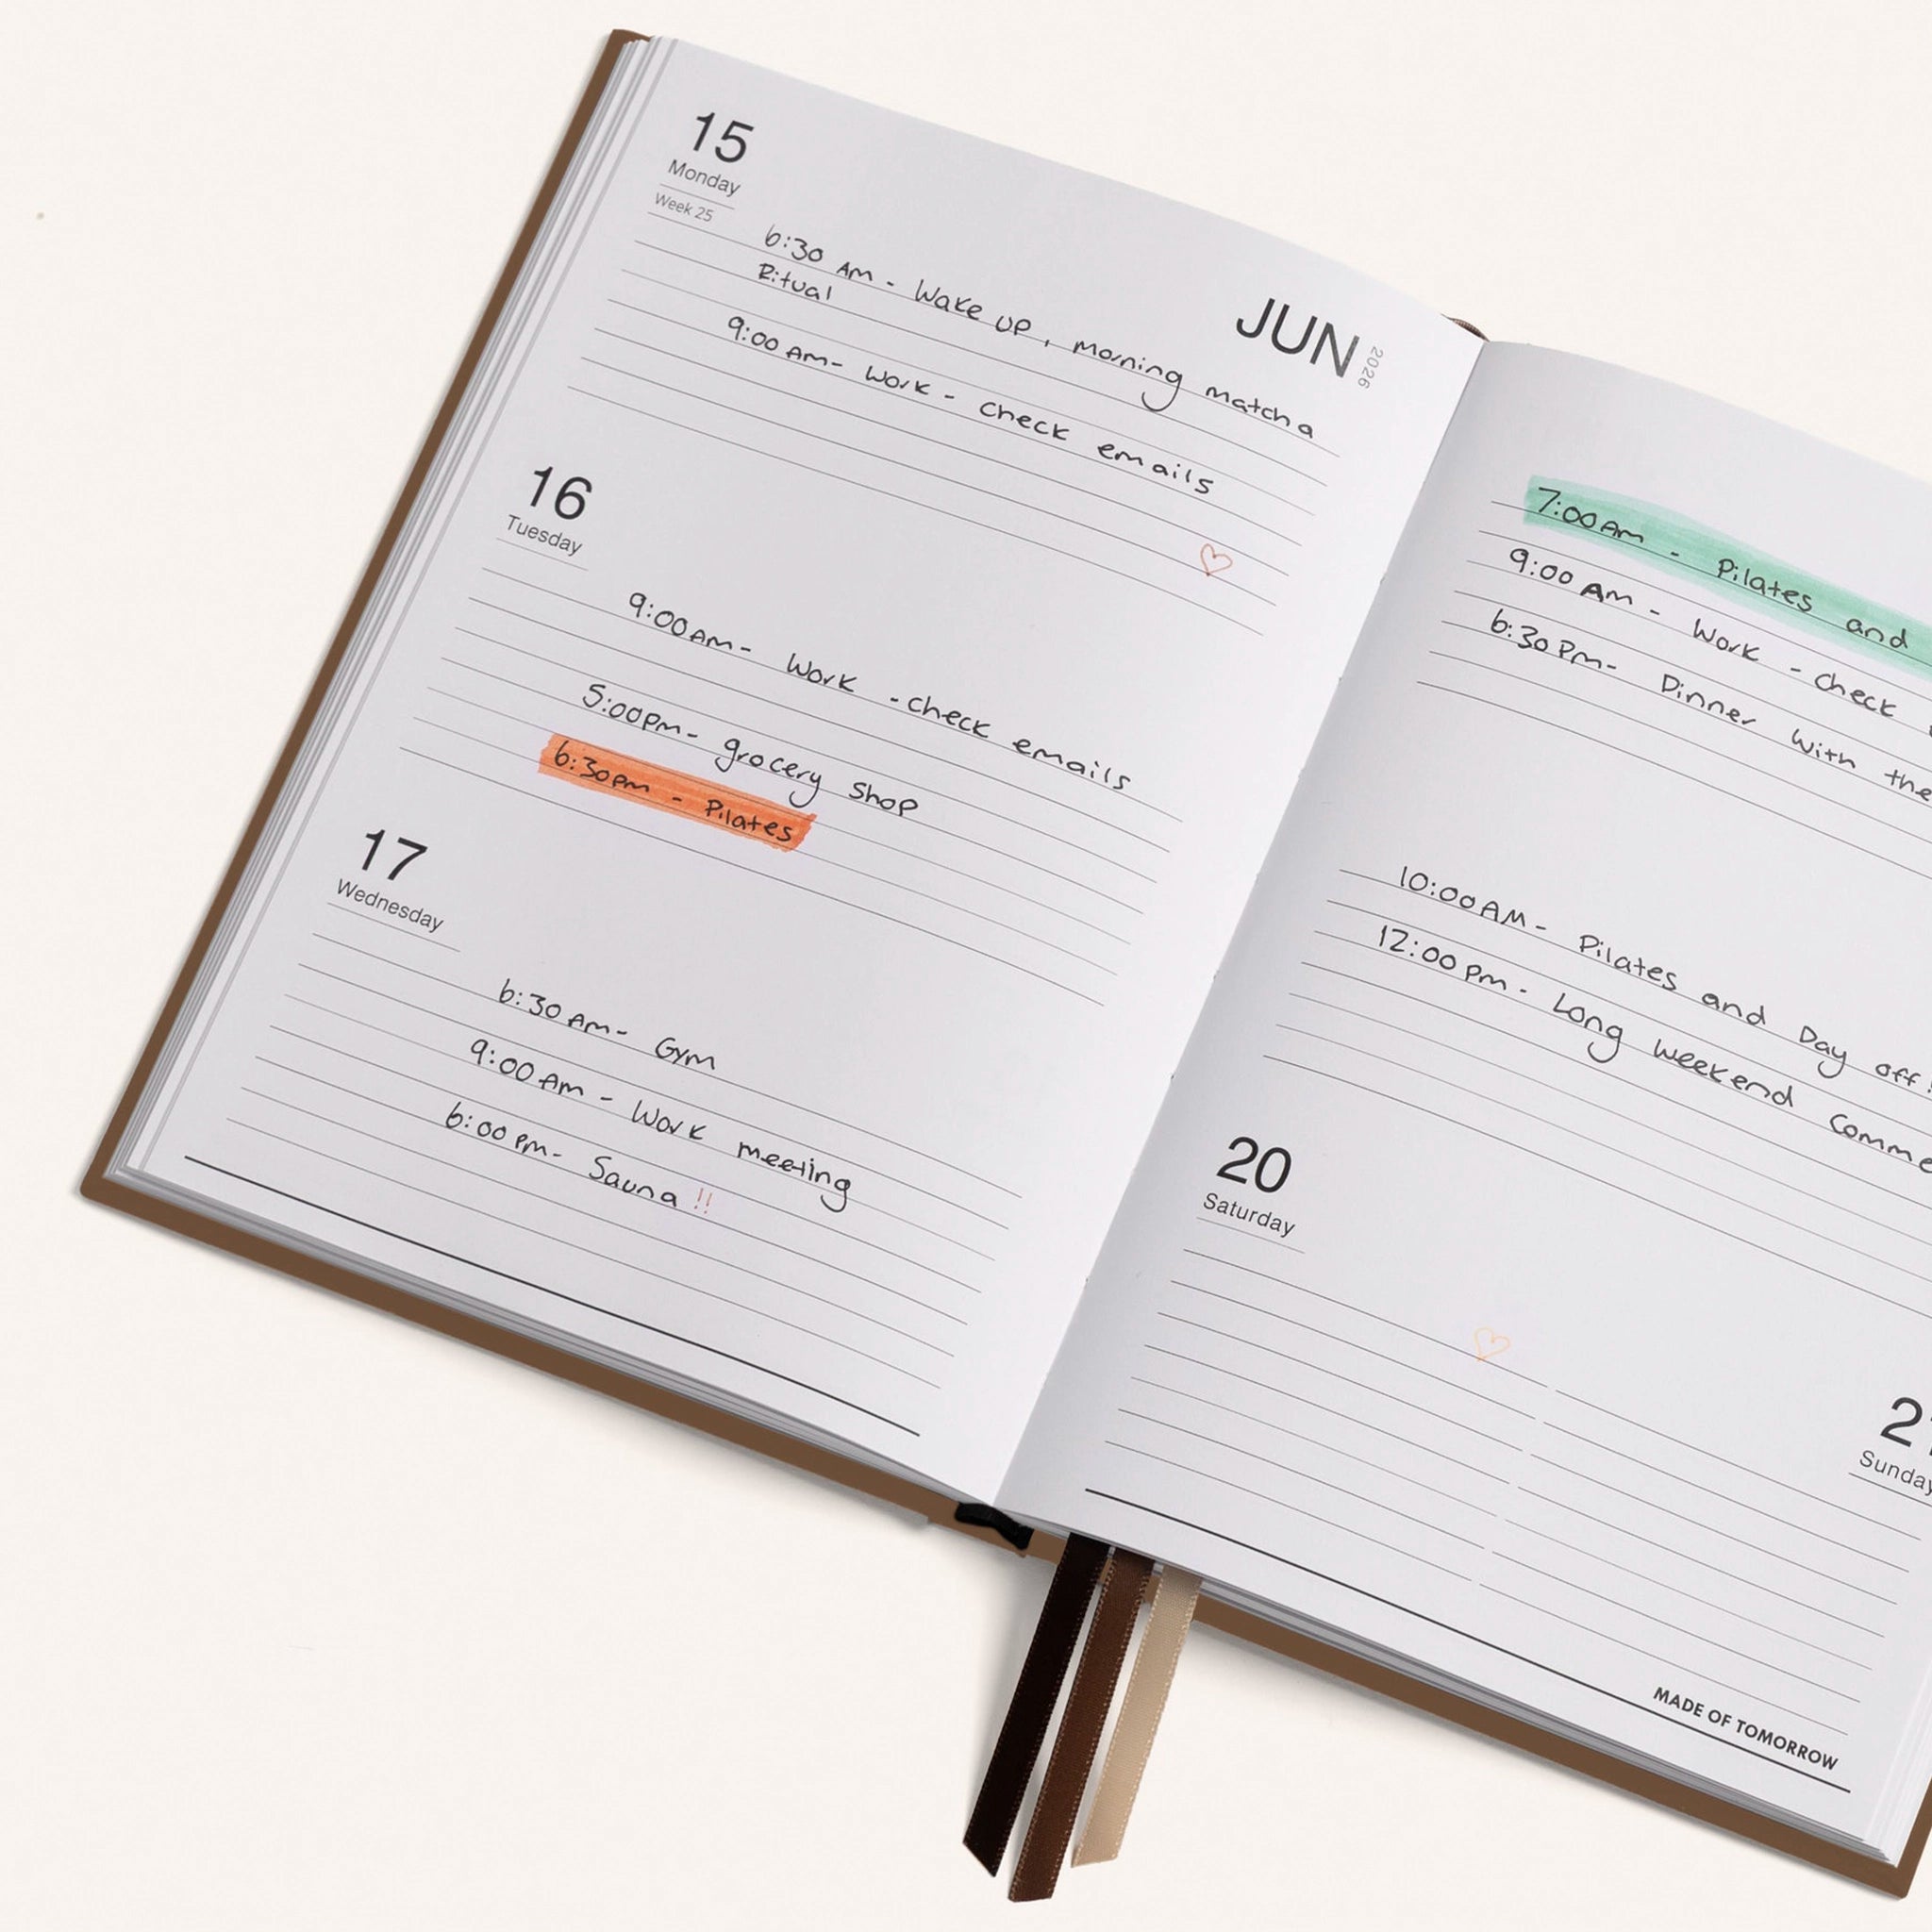 15
Monday
Week 25
JUN 2026
6:30 Am - Wake up, morning matcha
Ritual
9:00 Am- Work - check emails
16
Tuesday
9:00 Am- Work - check emails
5:00pm- grocery shop
6:30pm - Pilates
17
Wednesday
6:30 Am- Gym
9:00 Am - Work meeting
6:00 pm- Sauna !!
7:00 Am - Pilates and
9:00 Am - Work - check
6:30 Pm- Dinner with the
10:00 AM- Pilates and Day off!
12:00 pm- Long weekend
20
Saturday
Sunday
MADE OF TOMORROW